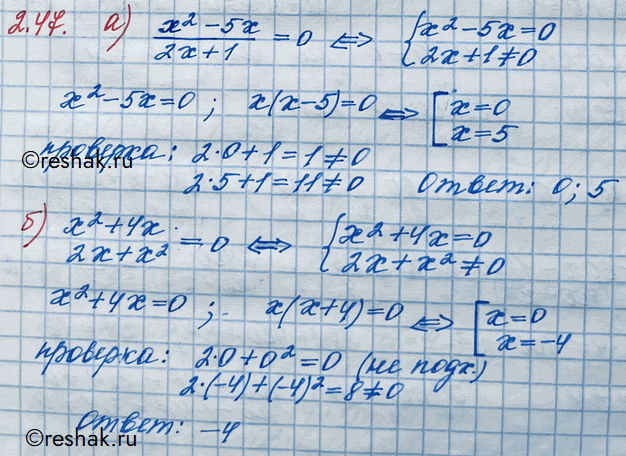 2.47. а) (x² – 5x)/(2x+1) = 0 ⟺ { x² – 5x = 0
2x+1 ≠ 0
x² – 5x = 0 ; x(x–5) = 0 ⟺ [ x = 0
x = 5
проверка: 2·0+1 = 1 ≠ 0
©reshak.ru
2·5+1 = 11 ≠ 0 Ответ: 0; 5
б) (x²+4x)/(2x+x²) = 0 ⟺ { x²+4x = 0
2x+x² ≠ 0
x²+4x = 0 ; x(x+4) = 0 ⟺ [ x = 0
x = –4
проверка: 2·0+0² = 0 (не подх.)
2·(–4)+(–4)² = 8 ≠ 0
Ответ: –4
©reshak.ru